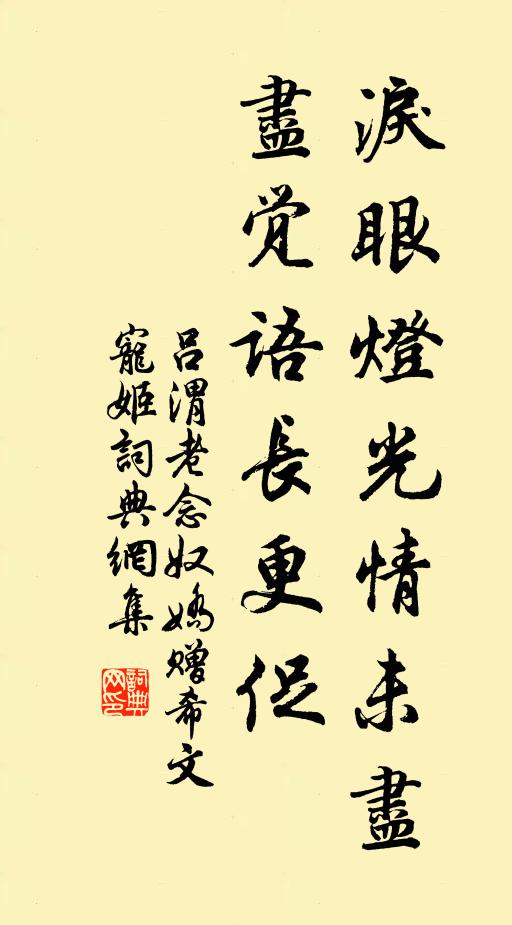 淚眼燈光情未盡
盡覚語長更促
吕渭老念奴嬌贈希文
寵姬詞典網集
詞典
网印